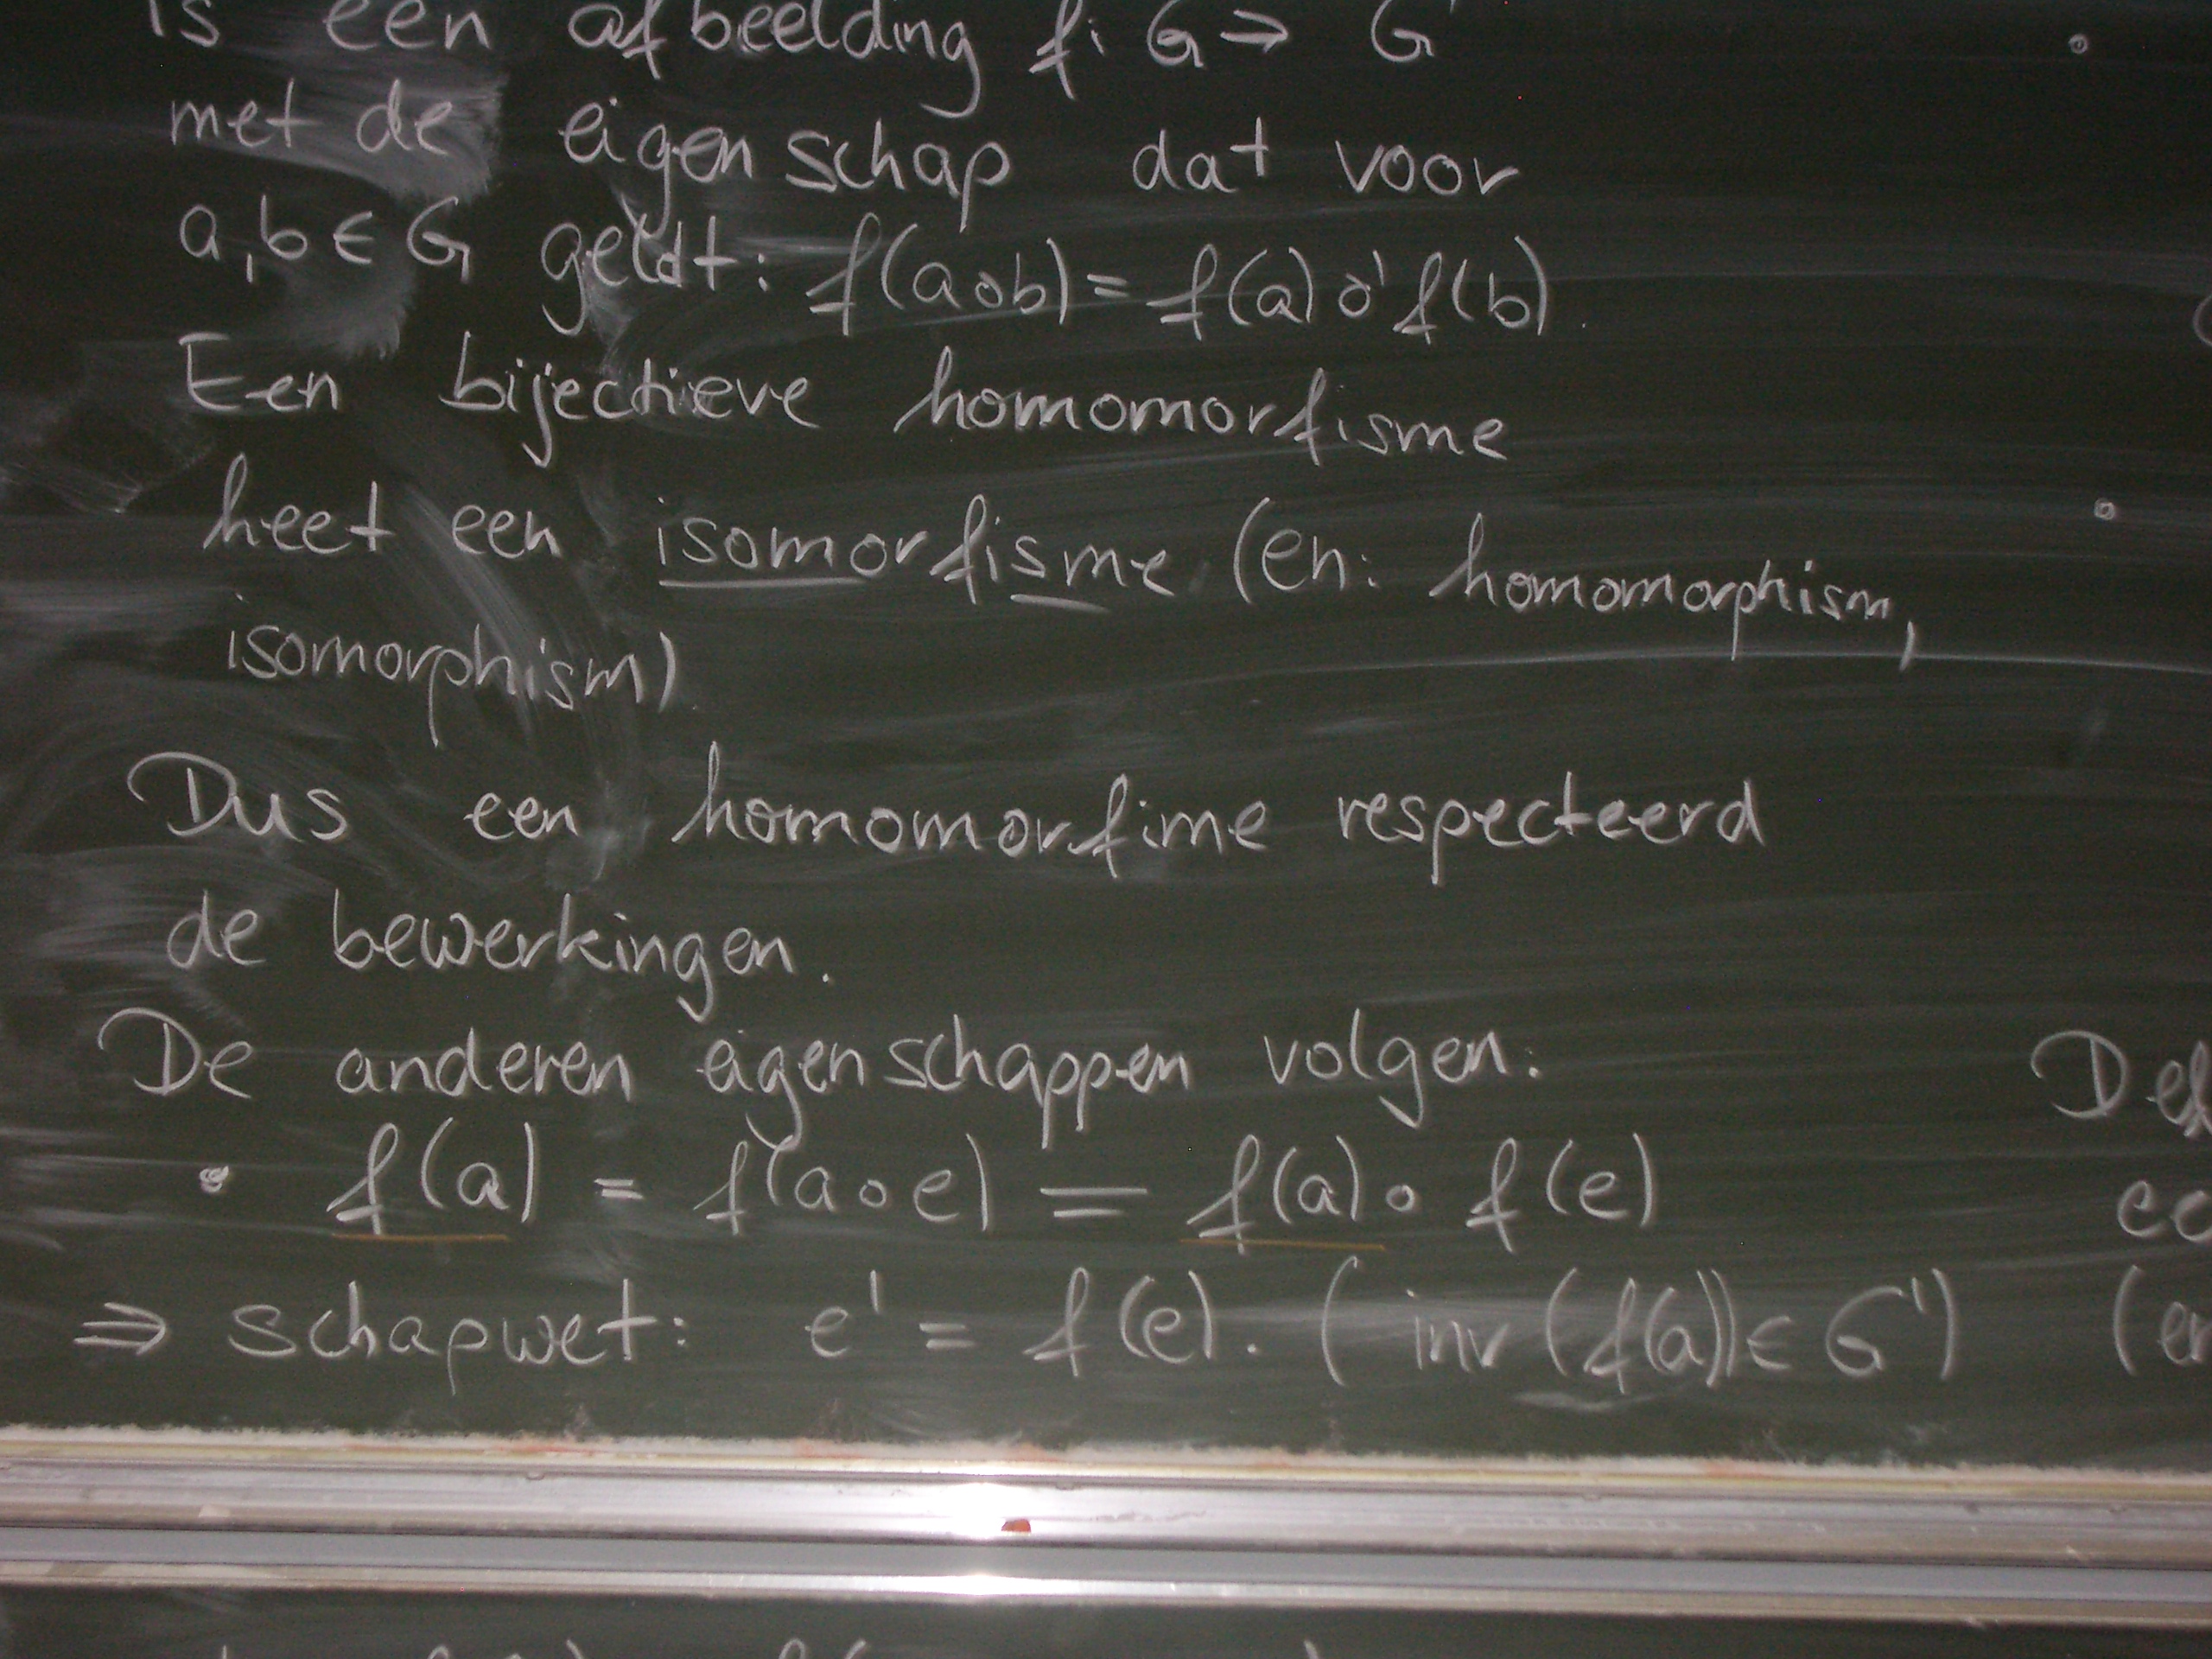 is een afbeelding f: G → G'
met de eigenschap dat voor
a,b ∈ G geldt: f(a∘b) = f(a) ∘' f(b).
Een bijectieve homomorfisme
heet een isomorfisme (en: homomorphism,
isomorphism)
Dus een homomorfime respecteerd
de bewerkingen.
De anderen eigenschappen volgen:
• f(a) = f(a∘e) = f(a)∘ f(e)
⇒ schapwet: e' = f(e). ( inv (f(a)) ∈ G')